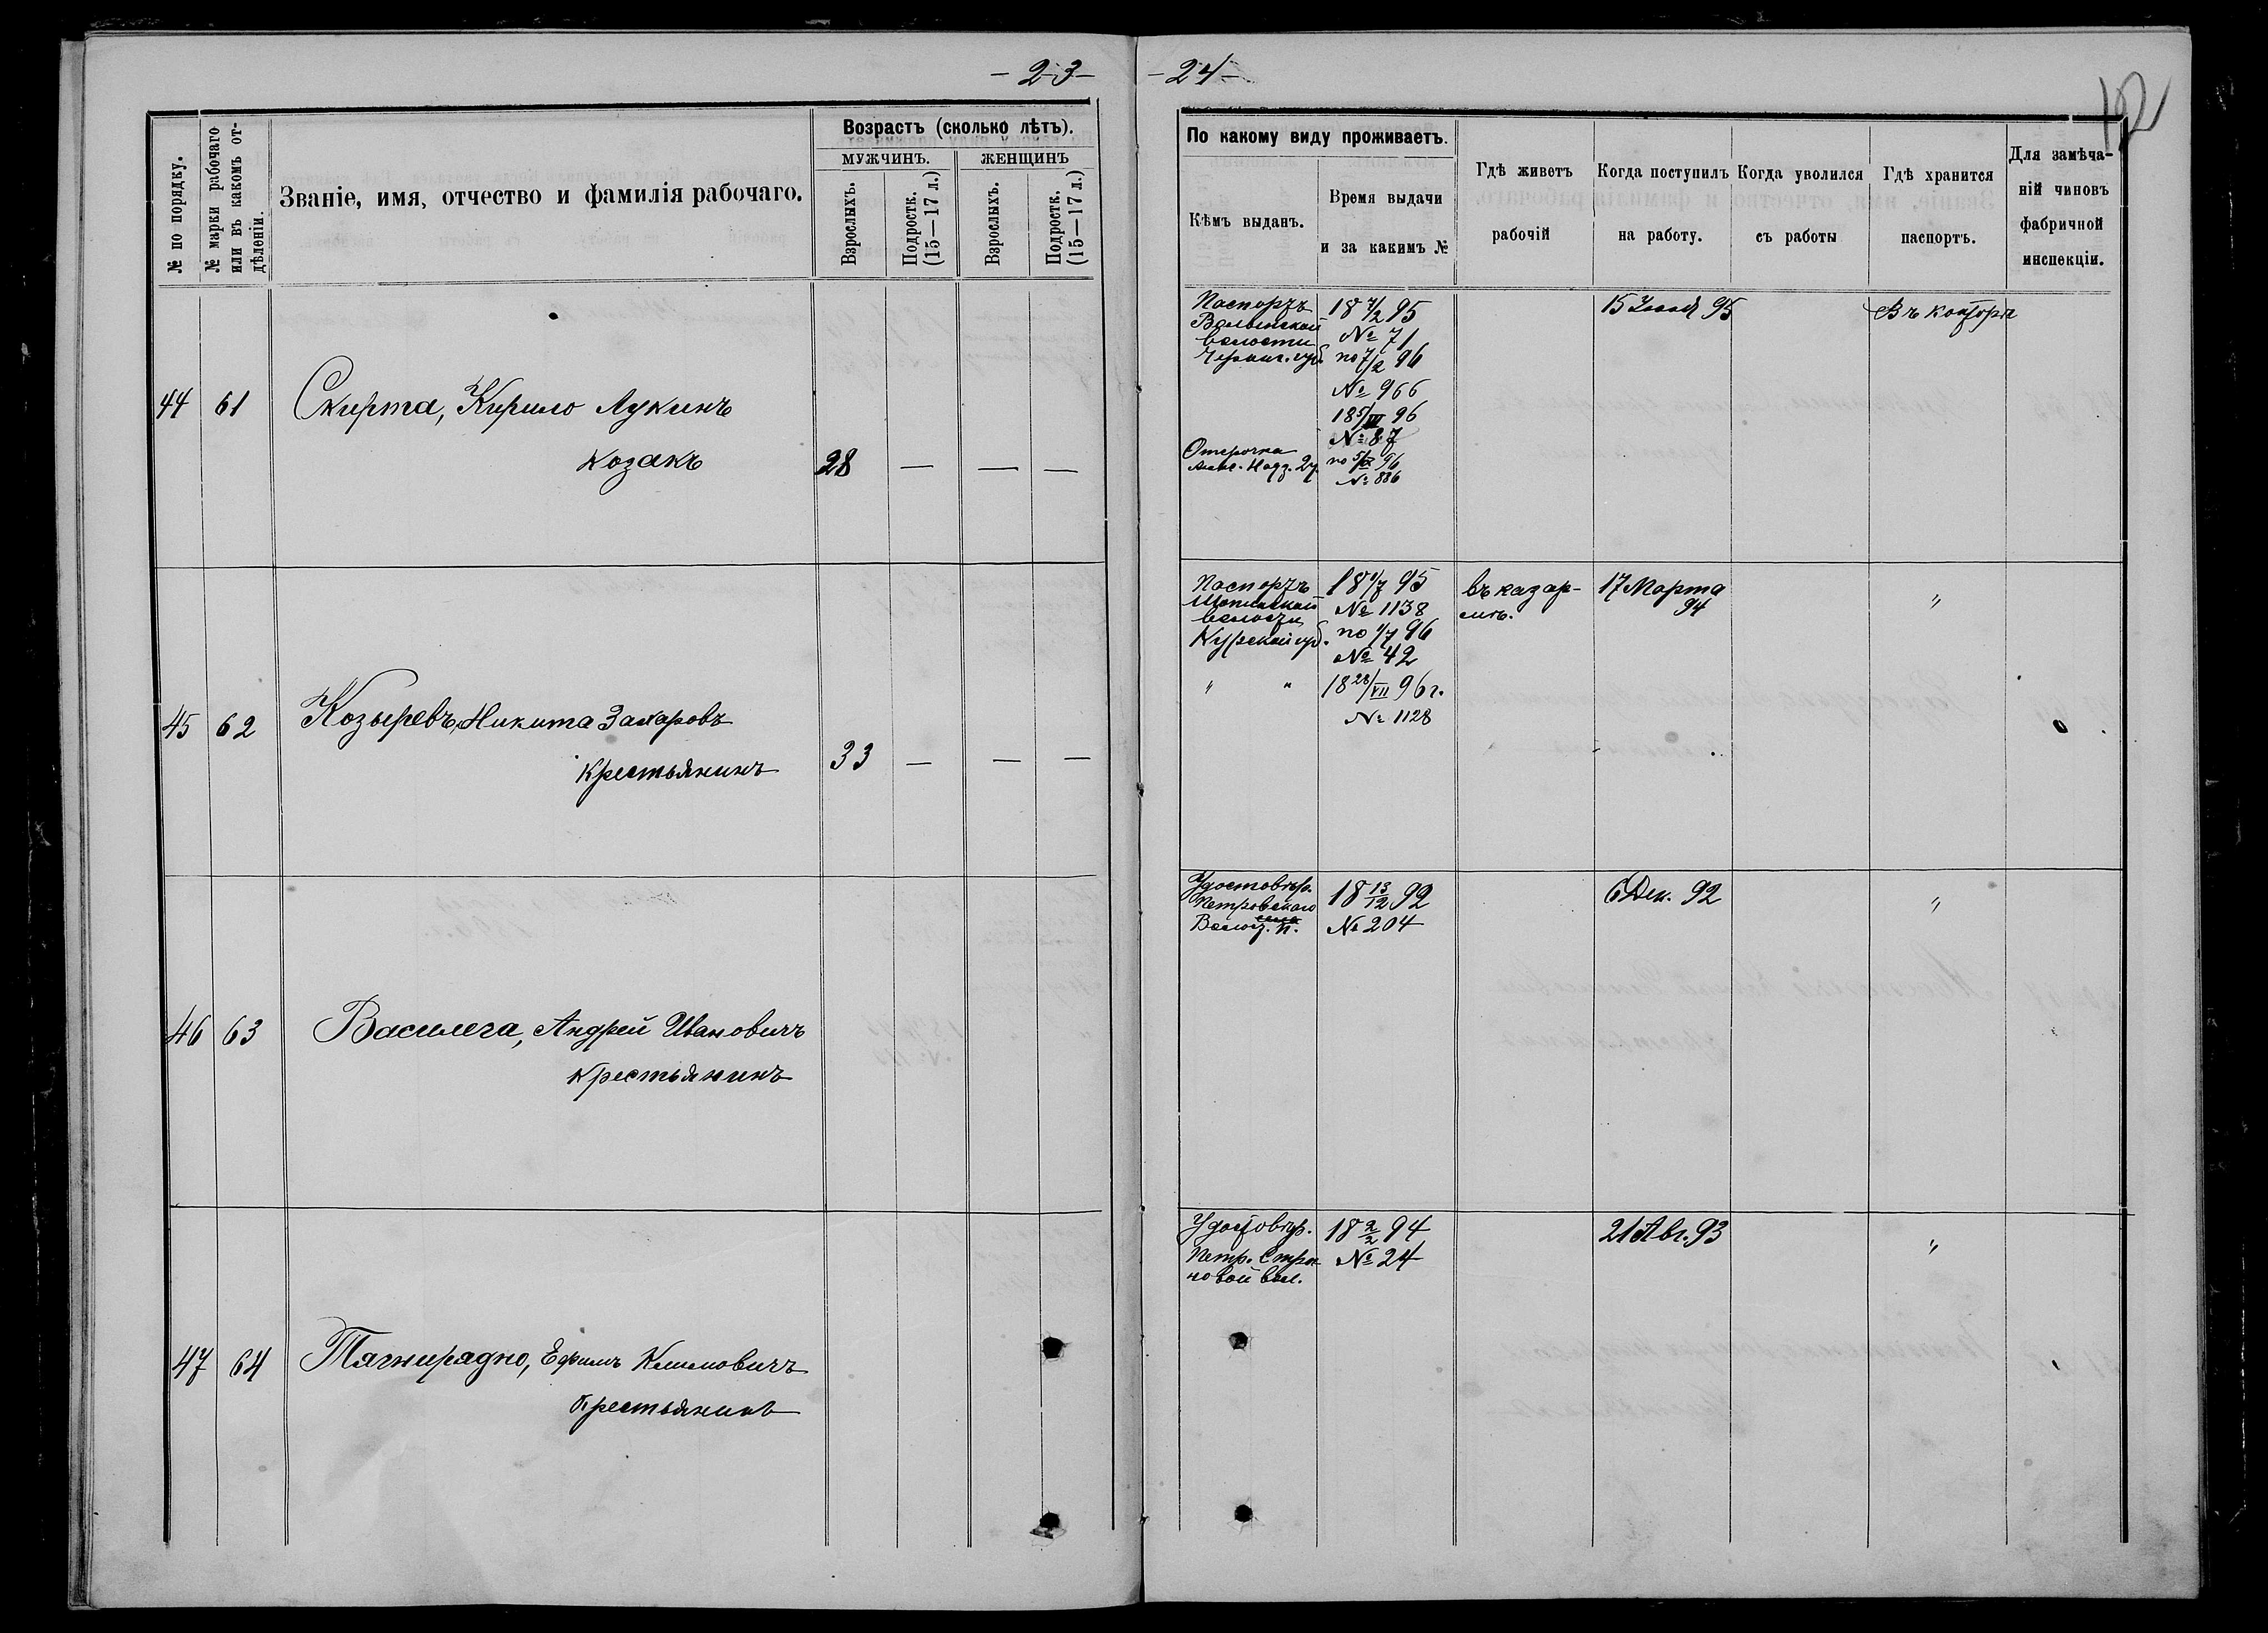 - 23 -
№ по порядку.
№ марки рабочаго или въ какомъ отдѣленіи.
Званіе, имя, отчество и фамилія рабочаго.
Возрастъ (сколько лѣтъ).
МУЖЧИНЪ.
ЖЕНЩИНЪ
Взрослыхъ.
Подростк. (15—17 л.)
Взрослыхъ.
Подростк. (15—17 л.)
44 61 Скирта, Кирило Лукинъ
козакъ 28 — — —
45 62 Козыревъ, Никита Захаровъ
крестьянинъ 33 — — —
46 63 Василега, Андрей Ивановичъ
крестьянинъ
47 64 Тягнирядно, Ефимъ Климовичъ
крестьянинъ
- 24 -
12
По какому виду проживаетъ.
Кѣмъ выданъ.
Время выдачи
и за какимъ №
Гдѣ живетъ
рабочій
Когда поступилъ
на работу.
Когда уволился
съ работы
Гдѣ хранится
паспортъ.
Для замѣча-
ній чиновъ
фабричной
инспекціи.
Паспортъ 18 7/2 95 15 Іюля 95 Въ конторѣ
волости № 71
Черниг. губ. по 7/2 96
№ 966
18 5/III 96
№ 87
Отсрочка
Надз. 2 ч. по 96
№ 886
Паспортъ 18 1/7 95 въ казар- 17 Марта
№ 1138 мѣ. 94 "
волости
Курской губ. по 1/7 96
№ 42
" " 18 28/VII 96 г.
№ 1128
Удостовѣр. 18 13/12 92 6 Дек. 92 "
Петровскаго
села
Волост. П. № 204
Удостовѣр. 18 2/2 94 21 Авг. 93 "
Петр. Стро № 24
новой вол.